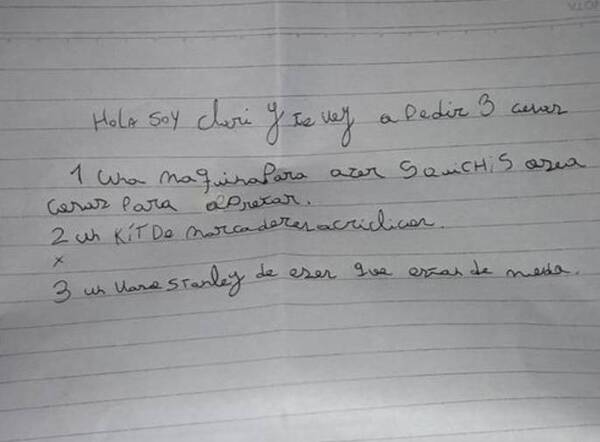 Hola soy clari y te voy a pedir 3 cosas
1 una maquina para acer squichis osea
cosas para apretar.
2 un KIT De marcadores acrilicos.
x
3 un vaso stanley de esos que estan de moda.